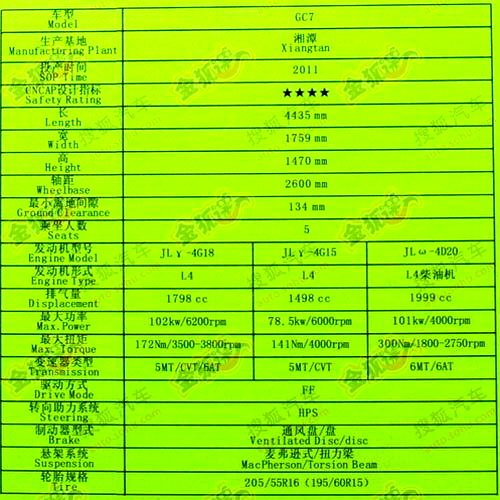 车型 GC7
Model
生产基地 湘潭
Manufactoring Plant Xiangtan
投产时间 2011
SOP Time
CNCAP设计指标 ★★★★
Safety Rating
长 4435 mm
Length
宽 1759 mm
Width
高 1470 mm
Height
轴距 2600 mm
Wheelbase
最小离地间隙 134 mm
Ground Clearance
乘坐人数 5
Seats
发动机型号 JLγ-4G18 JLγ-4G15 JLω-4D20
Engine Model
发动机形式 L4 L4 L4柴油机
Engine Type
排气量 1798 cc 1498 cc 1999 cc
Displacement
最大功率 102kw/6200rpm 78.5kw/6000rpm 101kw/4000rpm
Max. Power
最大扭矩 172Nm/3500-3800rpm 141Nm/4000rpm 300Nm/1800-2750rpm
Max. Torque
变速器类型 5MT/CVT/6AT 5MT/CVT 6MT/6AT
Transmission
驱动方式 FF
Drive Mode
转向助力系统 HPS
Steering
制动器型式 通风盘/盘
Brake Ventilated Disc/disc
悬架系统 麦弗逊式/扭力梁
Suspension MacPherson/Torsion Beam
轮胎规格 205/55R16（195/60R15）
Tire
搜狐汽车
auto.sohu.com